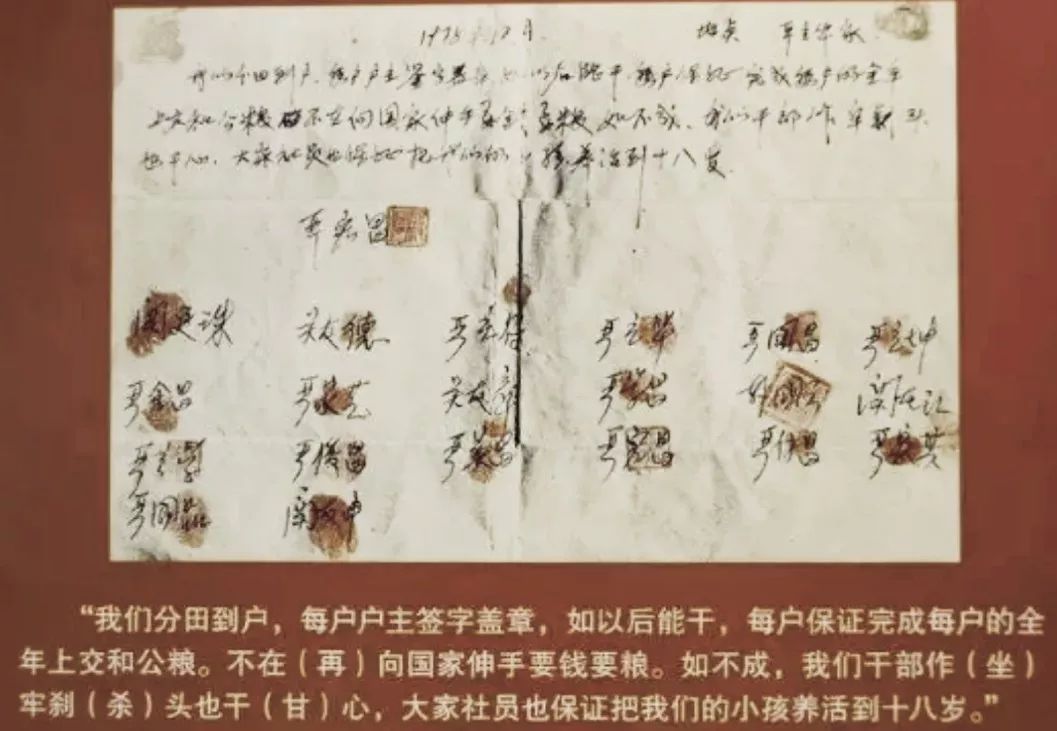 1978年12月. 地点 严立华家
我们分田到户,每户户主签字盖章,如以后能干,每户保证完成每户的全年
上交和公粮 不在向国家伸手要钱要粮 如不成,我们干部作牢刹头
也干心,大家社员也保证把我们的小孩养活到十八岁
严宏昌
关廷珠 关友德 严立符 严立华 严国昌 严立坤
严金昌 严家芝 关友章 严学昌 韩国云 关友江
严立学 严俊昌 严美昌 严宏昌 严付昌 严家其
严国品 关友申
“我们分田到户，每户户主签字盖章，如以后能干，每户保证完成每户的全
年上交和公粮。不在（再）向国家伸手要钱要粮。如不成，我们干部作（坐）
牢刹（杀）头也干（甘）心，大家社员也保证把我们的小孩养活到十八岁。”